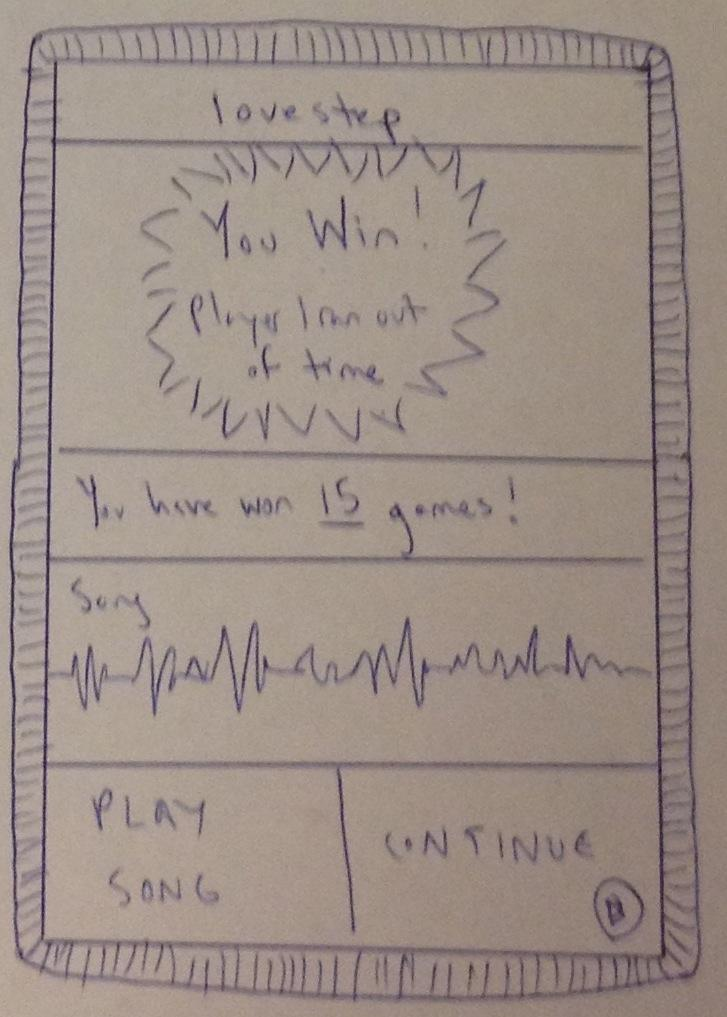 lovestep
You Win!
Player 1 ran out
of time
You have won 15 games!
Song
PLAY
SONG
CONTINUE